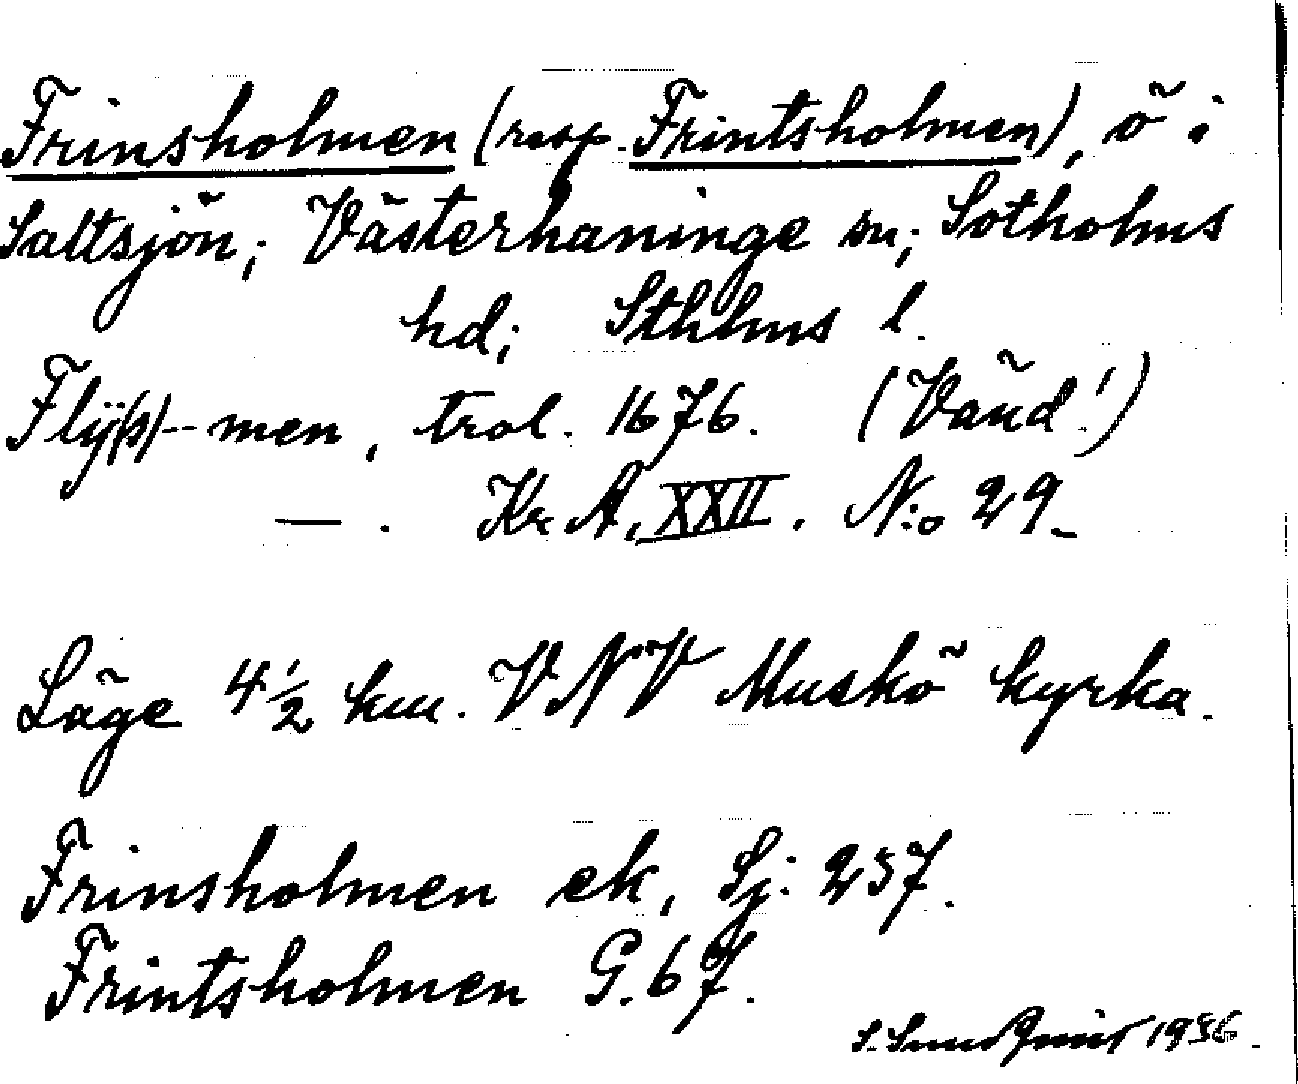 Frinsholmen (resp. Frintsholmen), ö i
Saltsjön; Västerhaninge sn; Sotholms
hd; Sthlms l.
Flÿ(s)--men, trol. 1676. (Vänd!)
— . Kr A, XXII. N:o 29_
Läge 4 1/2 km. VNV Muskö kyrka.
Frinsholmen ek, Sj. 257.
Frintsholmen G. 67.
S. Sundquist 1936.